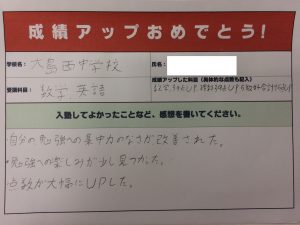 成績アップおめでとう！
学校名：大島西中学校
氏名：
受講科目：数学、英語
成績アップした科目（具体的な点数も記入）
入塾してよかったことなど、感想を書いてください。
・自分の勉強への集中力のなさが改善された。
・勉強への楽しみが少し見つかった。
・点数が大幅にUPした。